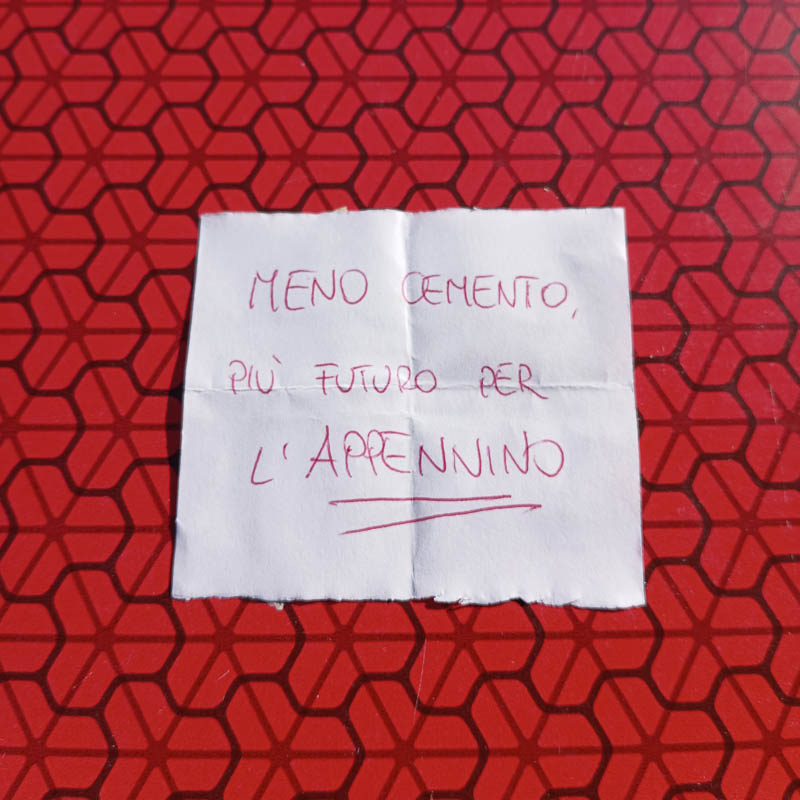 MENO CEMENTO,
PIÙ FUTURO PER
L'APPENNINO